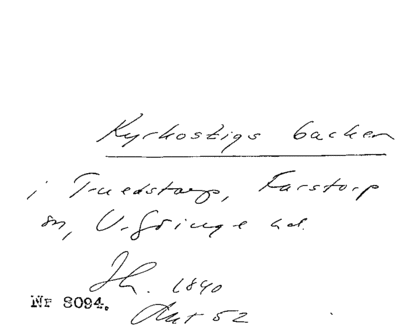 Kyrkostigs backen
i Truedstorp, Farstorp
sn, V. Göinge hd.
Jh. 1840
Akt 52
Nr 8094.